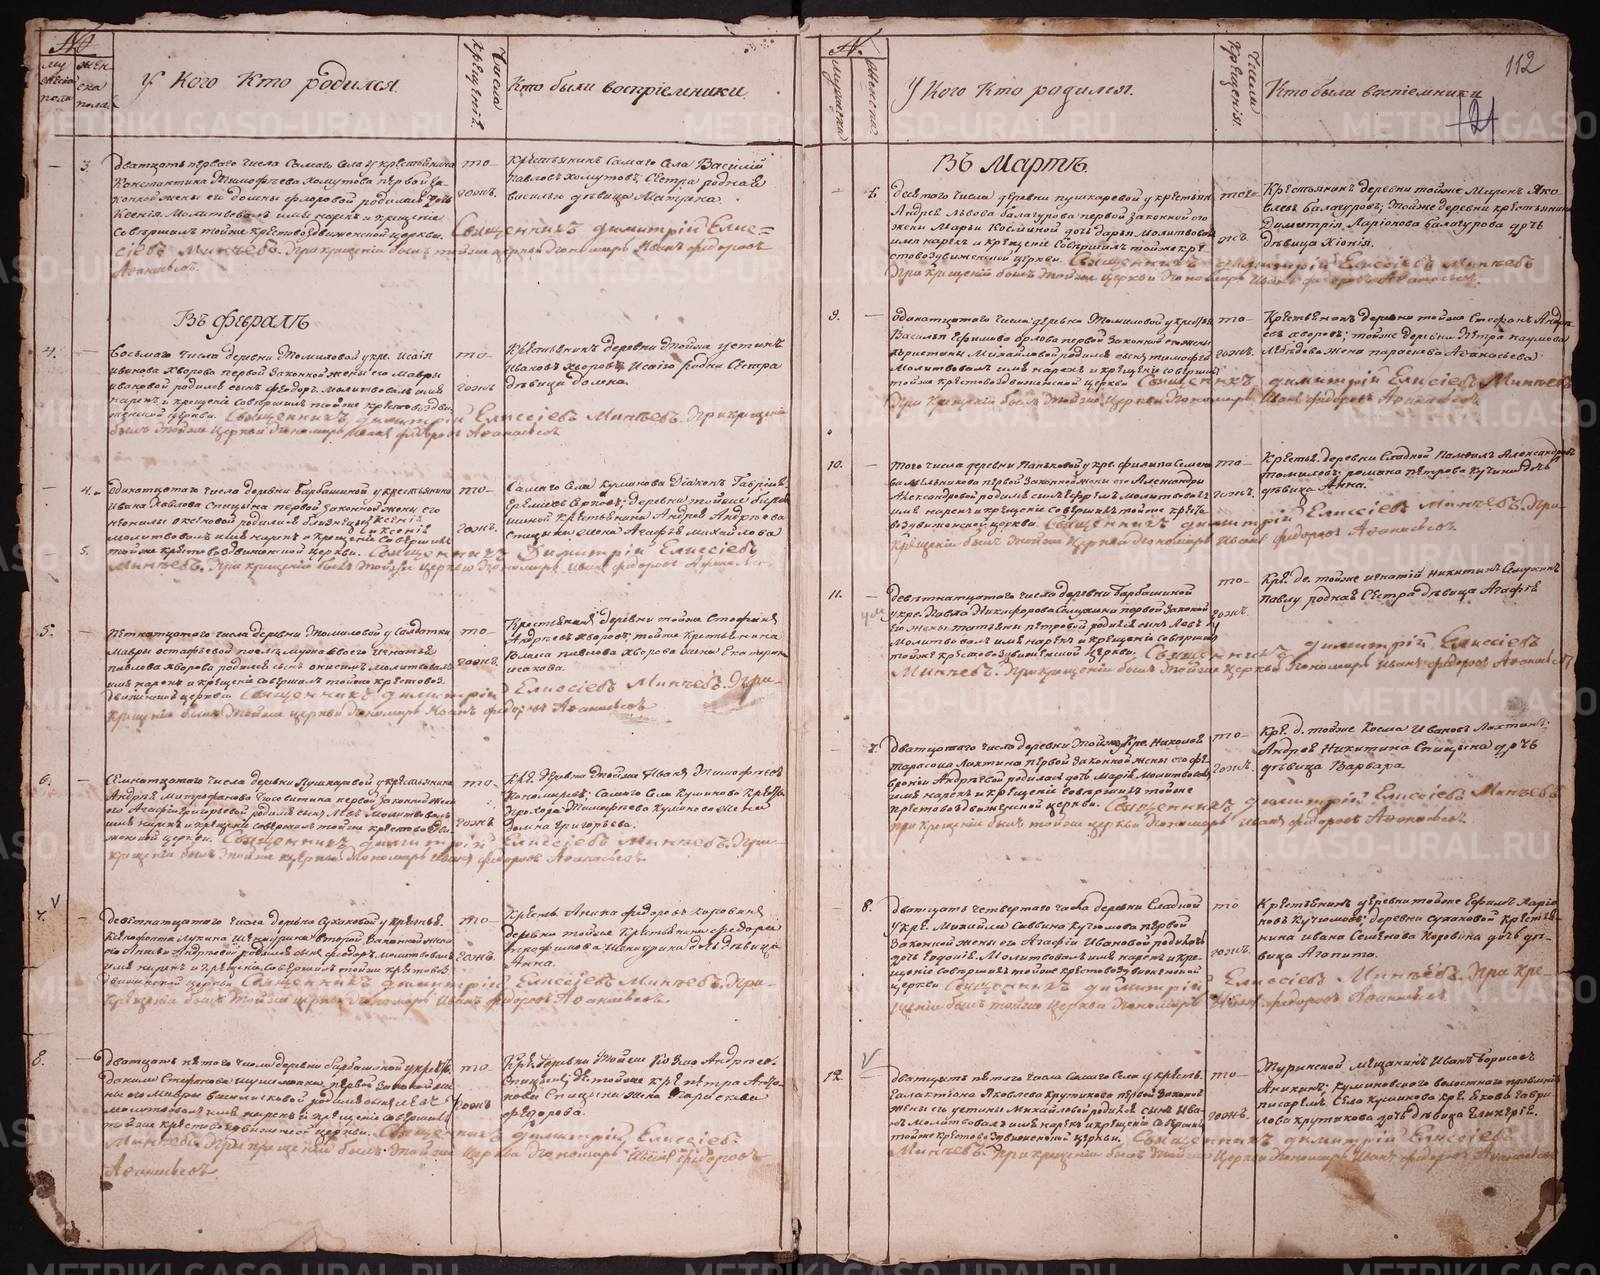 №
муженска пола
женска пола
У Кого Кто родился
Числа крещенiй.
Кто были восприемники
3.
Дватцать перваго числа Самаго Села у крестьянина
Константина Тимофѣева Хомутова первой за-
конной жены его Домны Флоровой родилась дочь
Ксенiя. Молитвовалъ имя нарекъ и крещенiе
Совершилъ тойже крестовоздвиженской церкви. Священникъ Димитрiй Елис=
сiевъ Минѣевъ. При крещенiи былъ тойже церкви пономарь Иванъ Федоровъ
Аѳанасьевъ.
то-
гожъ.
Крестьянинъ Самаго Села Василiй
Павловъ Хомутовъ, Сестра родная
Василью дѣвица Матрена.
Въ Февралѣ
4.
Восьмаго числа деревни Томиловой у кре. Исаiя
Иванова Хворова первой законной жены его Мавры
Ивановой родился сынъ Феодоръ. Молитвовалъ имя
нарекъ и крещенiе совершилъ тойже крестовоздви-
женской церкви. Священникъ Димитрiй Елиссiевъ Минѣевъ. При крещенiи
былъ тойже церкви пономарь Иванъ Федоровъ Аѳанасьевъ
то-
гожъ
Крестьянинъ деревни тойже Устинъ
Ивановъ Хворовъ, Исаiю родна Сестра
дѣвица Домна.
4.
5.
Одинатцатого числа деревни Барбашиной у крестьянина
Ивана Павлова Спицына первой законной жены его
родились близнецы Ксенiя
и Ксенiя
Молитвовалъ имя нарекъ и крещенiе Совершилъ
тойже крестовоздвиженской церкви. Священникъ Димитрiй Елиссiевъ
Минѣевъ. При крещенiи былъ тойже церкви пономарь Иванъ Федоровъ Аѳанасьевъ
то-
гожъ.
Самаго Села Куминова Дiаконъ Гаврiилъ
деревни тойже Барба
шиной крестьянина Андрея Андрѣева
Спицына жена Агафья Михайлова
5.
Пятнатцатого числа деревни Томиловой у Солдатки
Мавры Остафьевой
Павлова Хворова родился сынъ Онисимъ Молитвовалъ
имя нарекъ и крещенiе Совершилъ тойже крестовоз
движенской церкви. Священникъ Димитрiй Елиссiевъ Минѣевъ. При-
крещенiи былъ тойже церкви пономарь Иванъ Федоровъ Аѳанасьевъ
то-
гожъ.
Крестьянинъ деревни тойже Стефанъ
Андрѣевъ Хворовъ, тойже крестьянина
Власа Павлова Хворова жена Екатерина
Исакова.
6.
Семнатцатого числа деревни Пушкаревой у крестьянина
Андрея Митрофанова первой законной жены
его Агафьи Григорьевой родился сынъ Левъ Молитвовалъ
имя нарекъ и крещенiе совершилъ тойже крестовоздви-
женской церкви. Священникъ Димитрiй Елиссiевъ Минѣевъ. При-
крещенiи былъ тойже церкви пономарь Иванъ Федоровъ Аѳанасьевъ.
то-
гожъ
Кре. деревни тойже Иванъ Тимофѣевъ
Пономаревъ; Самаго Села Куминова Крестья
Прохора Тимофѣева Куминова жена
Домна Григорьева.
7.
V
Девятнатцатого числа деревни Сухановой у крестья.
Ксенофонта Лукина Шенкурина второй законной жены
его Анны Андрѣевой родился сынъ Федоръ, молитвовалъ
имя нарекъ и крещенiе совершилъ тойже крестовоз
движенской церкви Священникъ Димитрiй Елиссiевъ Минѣевъ. При-
крещенiи былъ тойже церкви пономарь Иванъ Федоровъ Аѳанасьевъ.
то-
гожъ.
Крестья. Аника Федоровъ Коровинъ
деревни тойже Крестьянина Федора
Никифорова Шенкурина дочь дѣвица
Анна.
8.
Дватцать пятого числа деревни Барбашиной у крестья.
Данилы Стефанова первой законной же-
ны его Мавры Васильевой родился сынъ
Молитвовалъ имя нарекъ и крещенiе совершилъ
тойже крестовоздвиженской церкви. Священникъ Димитрiй Елиссiевъ
Минѣевъ При крещенiи былъ тойже церкви пономарь Иванъ Федоровъ
Аѳанасьевъ
то-
гожъ
Кре. деревни тойже Козма Андрѣевъ
Спицынъ, де. тойже кре. Петра
Спицына жена Параскева
Федорова.
№
Мужеска
Женска.
У Кого Кто родился.
Числа крещенiя.
Кто были восприемники
112
121
Въ Мартѣ.
6.
Десятого числа деревни Пушкаревой у крестьян
Андрея Львова Балагурова первой законной его
жены Марьи Косминой дочь Дарья Молитвовалъ
имя нарекъ и крещенiе Совершилъ тойже кре
стовоздвиженской церкви. Священникъ Димитрiй Елиссiевъ Минѣевъ
При крещенiи былъ тойже церкви пономарь Иванъ Федоровъ Аѳанасьевъ.
того
жъ.
Крестьянинъ деревни тойже Миронъ Яко
влевъ Балагуровъ; тойже деревни крестьянина
Димитрiя Ларiонова Балагурова дочь
дѣвица Хiонiя.
9.
Одинатцатого числа деревни Томиловой у крестья
Василья Ефимова Орлова первой законной его жены
Христины Михайловой родился сынъ Тимофей
Молитвовалъ имя нарекъ и крещенiе совершилъ
тойже крестовоздвиженской церкви Священникъ Димитрiй Елиссiевъ Минѣевъ
При крещенiи былъ тойже церкви пономарь Иванъ Федоровъ Аѳанасьевъ
то-
гожъ.
Крестьянинъ деревни тойже Стефанъ Андрѣ
евъ Хворовъ; тойже деревни Петра Наумова
жена Параскева Аѳанасьева.
10.
Того числа деревни Паньковой у кре. Филипа Семено
ва Мѣльникова первой законной жены его Александры
Александровой родился сынъ Ефремъ Молитвовалъ
имя нарекъ и крещенiе Совершилъ тойже кресто
воздвиженской церкви. Священникъ Димитрiй Елиссiевъ Минѣевъ. При-
крещенiи былъ тойже церкви пономарь Иванъ Федоровъ Аѳанасьевъ.
то-
гожъ.
Крестья. деревни Сладкой Памфилъ Александровъ
Томиловъ; Романа Петрова дочь
дѣвица Анна.
11.
Девятнатцатого числа деревни Барбашиной
у кре. Павла Никифорова первой законой
его жены Татьяны Петровой родился сынъ Левъ
Молитвовалъ имя нарекъ и крещенiе Совершилъ
тойже крестовоздвиженской церкви. Священникъ Димитрiй Елиссiевъ
Минѣевъ. При крещенiи былъ тойже церкви пономарь Иванъ Федоровъ Аѳанасьевъ
то-
гожъ.
Кре. де. тойже Игнатiй Никитинъ
Павлу родная Сестра дѣвица Агафья
7.
Дватцатого числа деревни тойже Кре. Николая
Тарасова Лахтина первой законной жены его Фе-
вронiи Андрѣевой родилась дочь Марiя Молитвовалъ
имя нарекъ и крещенiе Совершилъ тойже
крестовоздвиженской церкви. Священникъ Димитрiй Елиссiевъ Минѣевъ
При крещенiи былъ тойже церкви пономарь Иванъ Федоровъ Аѳанасьевъ.
то-
гожъ.
Кре. д. тойже Косма Ивановъ Лахтинъ;
Андрея Никитина Спицына дочь
дѣвица Варвара.
8.
Дватцать четвертого числа деревни Сладкой
у кре. Михайла Саввина Кучюмова первой
законной жены его Агафьи Ивановой родилась
дочь Евдокiя. Молитвовалъ имя нарекъ и кре-
щенiе Совершилъ тойже крестовоздвиженской
церкви Священникъ Димитрiй Елиссiевъ Минѣевъ. При кре-
щенiи былъ тойже церкви пономарь Иванъ Федоровъ Аѳанасьевъ
то
гожъ.
Крестьянинъ деревни тойже Ефимъ Марiо
новъ Кучюмовъ; деревни Сухановой крестья-
нина Ивана Семенова Коровина дочь дѣ-
вица Агапита.
12.
V
Дватцать пятого числа Самаго Села у крестья.
Галактiона Яковлева Крутикова первой законной
жены его Устиньи Михайловой родился сынъ Ива-
нъ Молитвовалъ имя нарекъ и крещенiе Совершилъ
тойже крестовоздвиженской церкви. Священникъ Димитрiй Елиссiевъ
Минѣевъ. При крещенiи былъ тойже церкви пономарь Иванъ Федоровъ Аѳанасьевъ
то-
гожъ.
Туринской мещанинъ Иванъ Борисовъ
Аникинъ; Куминовского волостного правленiя
писаремъ, Села Куминова кре. Якова Гаври-
лова Крутикова дочь дѣвица Гликерiя.
METRIKI.GASO-URAL.RU